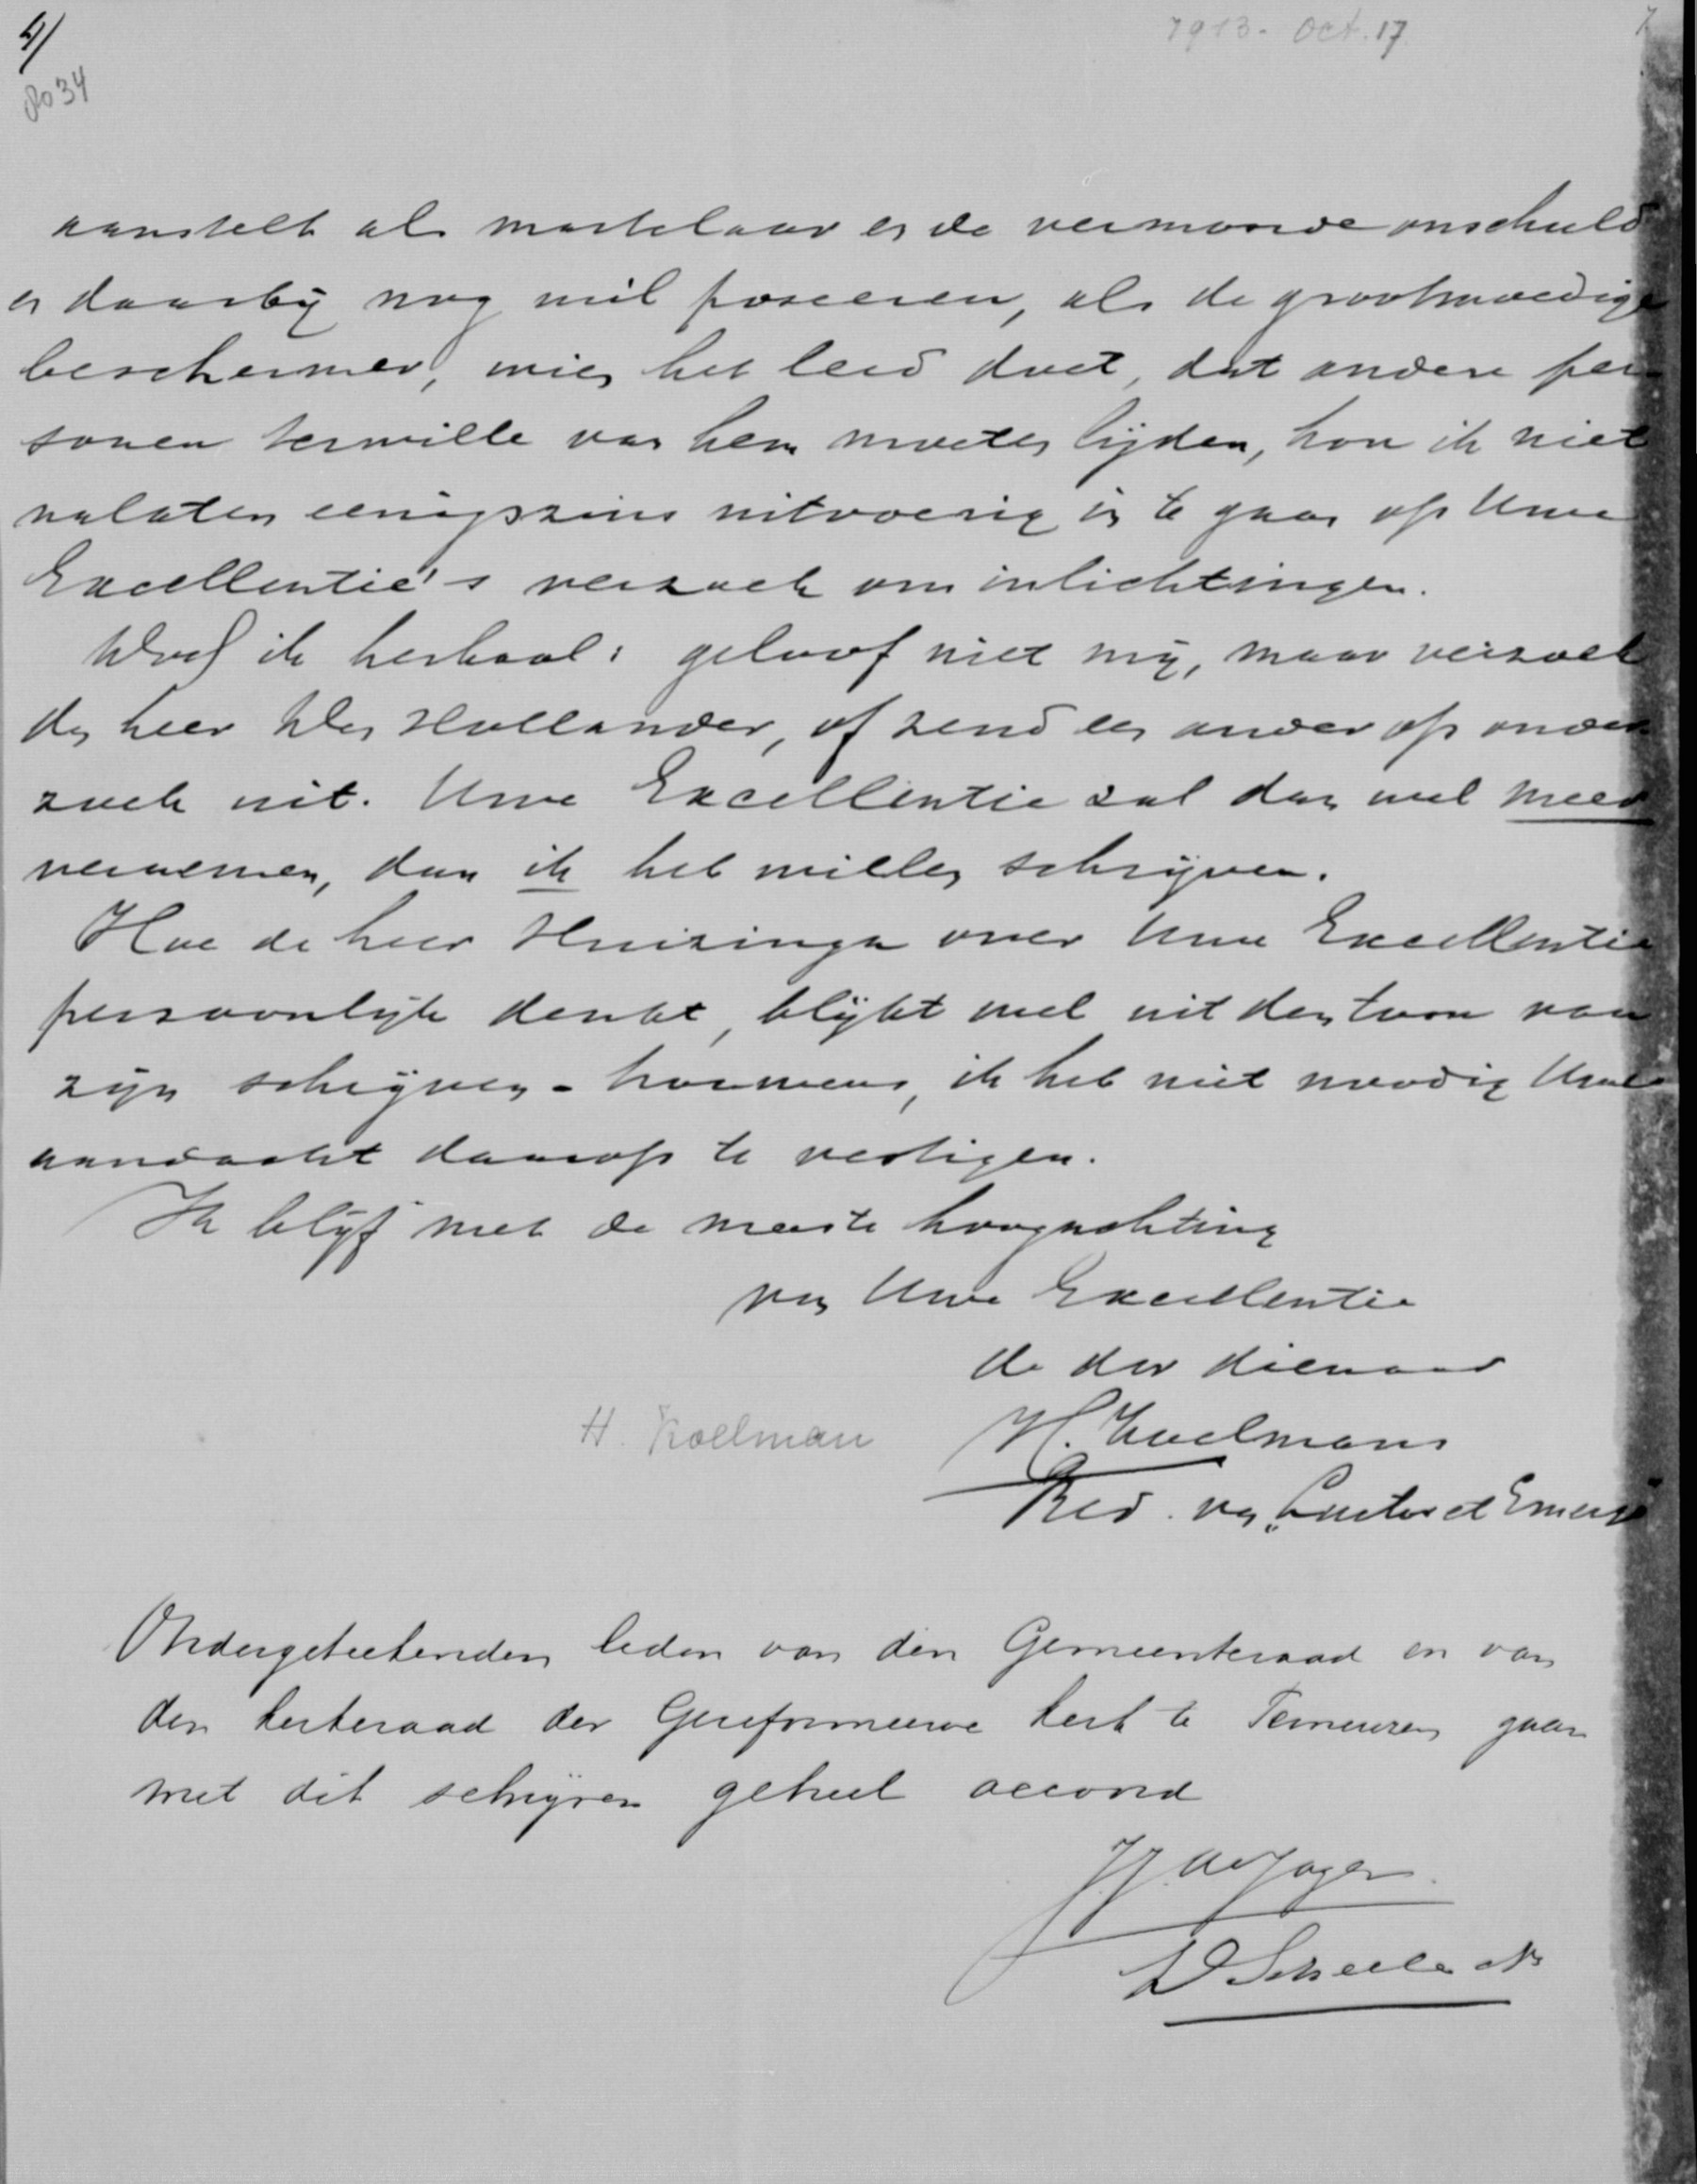 4/
1913. Oct. 17
No 34
aanstelt als martelaar en de vermoorde onschuld
en daarbij nog wil poseeren, als de grootmoedige
beschermer, wien het leed doet, dat andere per-
sonen terwille van hem moeten lijden, kon ik niet
nalaten eenigszins uitvoerig in te gaan op Uwe
Excellentie's verzoek om inlichtingen.
Doch ik herhaal: geloof niet mij, maar verzoek
den heer Den Hollander, of zend een ander op onder-
zoek uit. Uwe Excellentie zal dan wel meer
vernemen, dan ik heb willen schrijven.
Hoe de heer Huizinga over Uwe Excellentie
persoonlijk denkt, blijkt wel uit den toon van
zijn schrijven - trouwens, ik heb niet noodig Uwe
aandacht daarop te vestigen.
Ik blijf met de meeste hoogachting
van Uwe Excellentie
de dw dienaar
H. Koelman H. Koelmans
Red. van „Luctor et Emergo"
Ondergeteekenden leden van den Gemeenteraad en van
den kerkeraad der Gereformeerde kerk te Terneuzen gaan
met dit schrijven geheel accoord
J.J. de Jager.
D Scheele